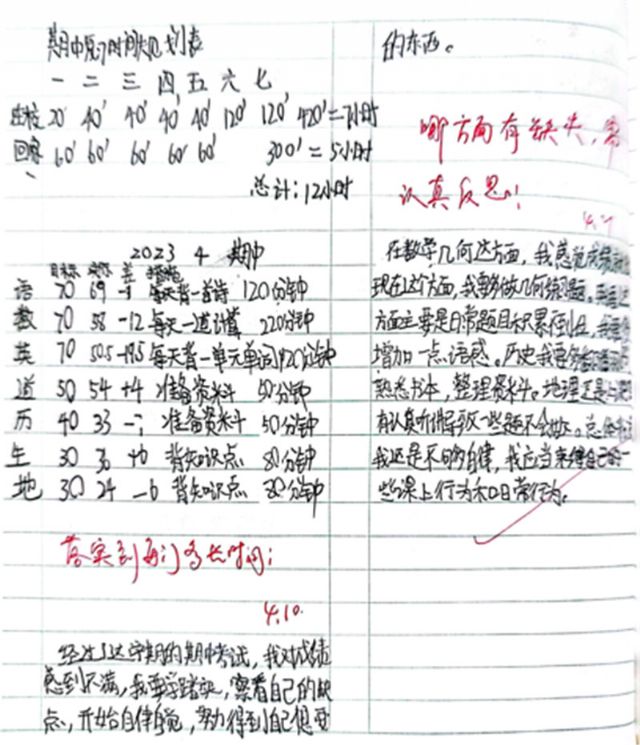 期中复习时间规划表
一 二 三 四 五 六 七
在校 20' 40' 40' 40' 40' 120' 120' 420'=7小时
回家 60' 60' 60' 60' 60' 300'=5小时
总计：12小时
2023 4 期中
目标 实际 差 措施
语 70 69 -1 每天背一首诗 120分钟
数 70 58 -12 每天一道计算 220分钟
英 70 50.5 -19.5 每天背一单元单词 120分钟
道 50 54 +4 准备资料 50分钟
历 40 33 -7 准备资料 50分钟
生 30 36 +6 背知识点 80分钟
地 30 24 -6 背知识点 80分钟
落实到每门多长时间；
4.10.
经过了这学期的期中考试，我对成绩
感到不满，我要学踏实，察看自己的缺
点，开始自律自觉，努力得到自己想要
的东西。
哪方面有缺失，需
认真反思！
在数学几何这方面，我感觉
现在这个方面，我要多做几何练习题。
方面主要是日常题目积累
增加一点语感。历史我要
熟悉书本，整理资料。地理还是
有认真听讲导致一些题不会做。
我还是不够自律，我应当 自己的一
些课上行为和日常行为。